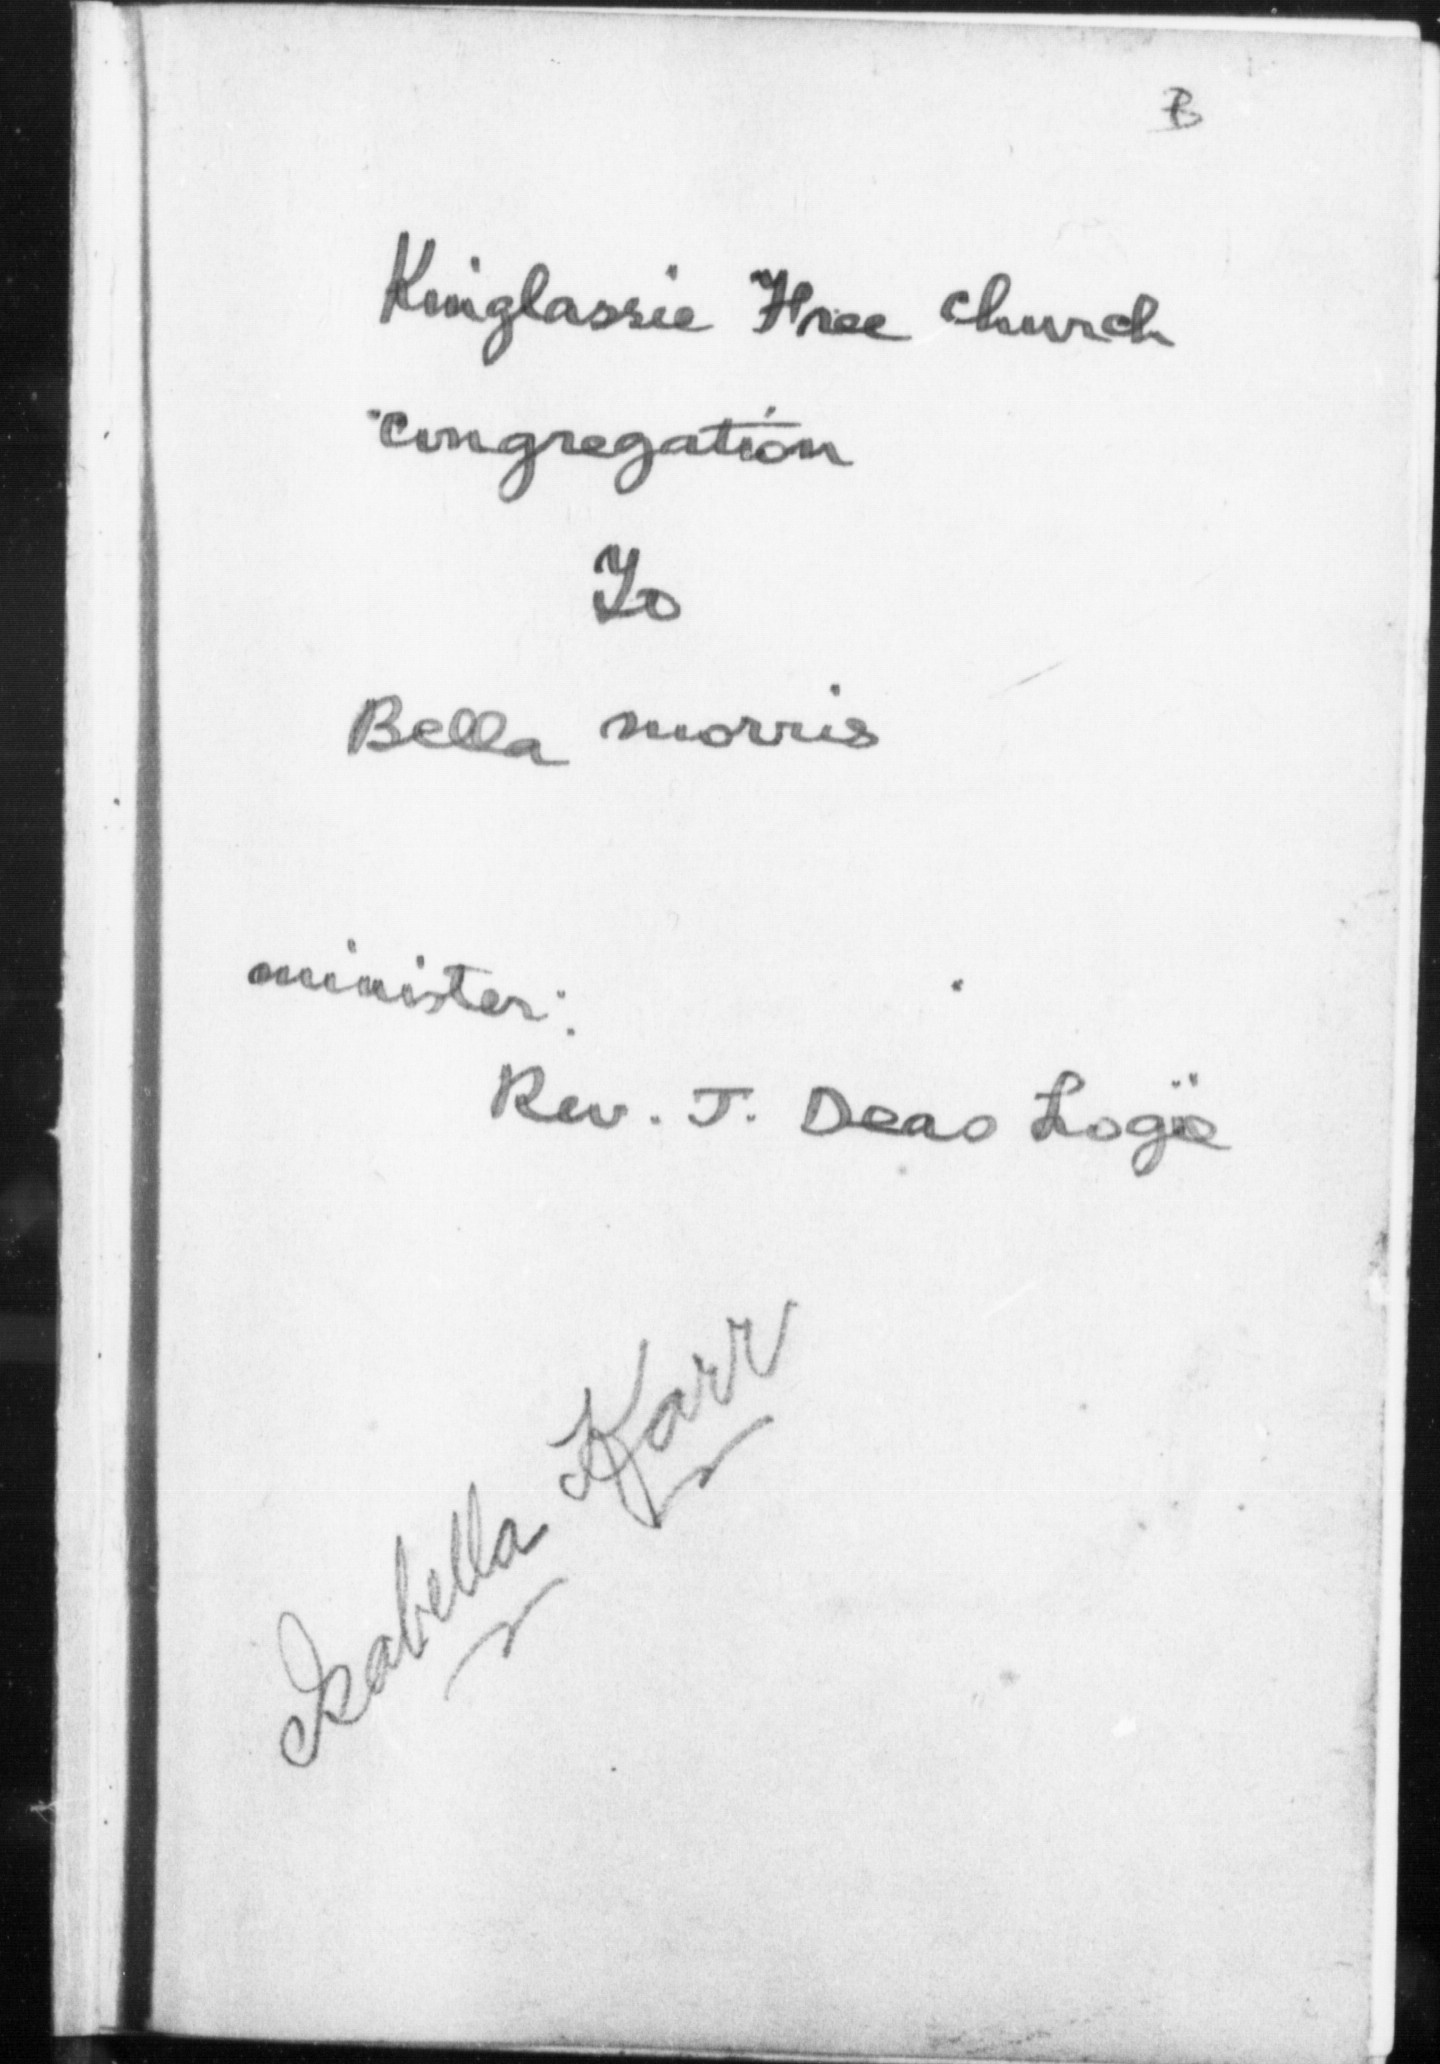 B
Kinglassie Free church
congregation
To
Bella morris
minister:
Rev. J. Deas Logie
Isabella Karr